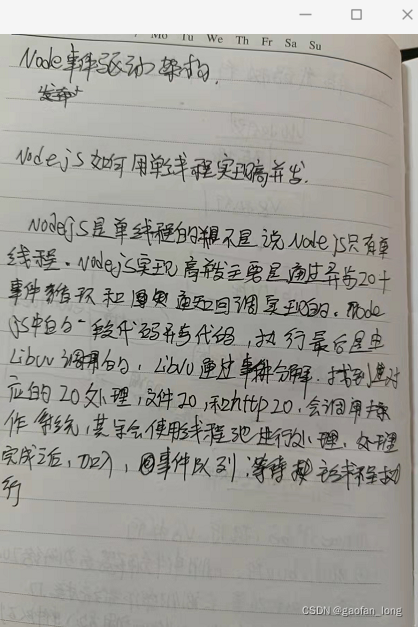 Mo Tu We Th Fr Sa Su
Node事件驱动架构.
Nodejs如何用单线程实现高并发.
Nodejs是单线程的 不是说Nodejs只有单
线程. Nodejs实现高并发主要是通过异步IO+
事件循环和 通知回调实现的. Node
js中的一段代码 代码, 执行最后是由
Libuv调用的, Libuv通过事件分解. 找到对
应的IO处理, 文件IO, 和http IO. 会调用操
作系统, 其 会使用线程池进行处理, 处理
完成之后, 加入, 事件队列. 等待 主线程执
行
CSDN @gaofan_long